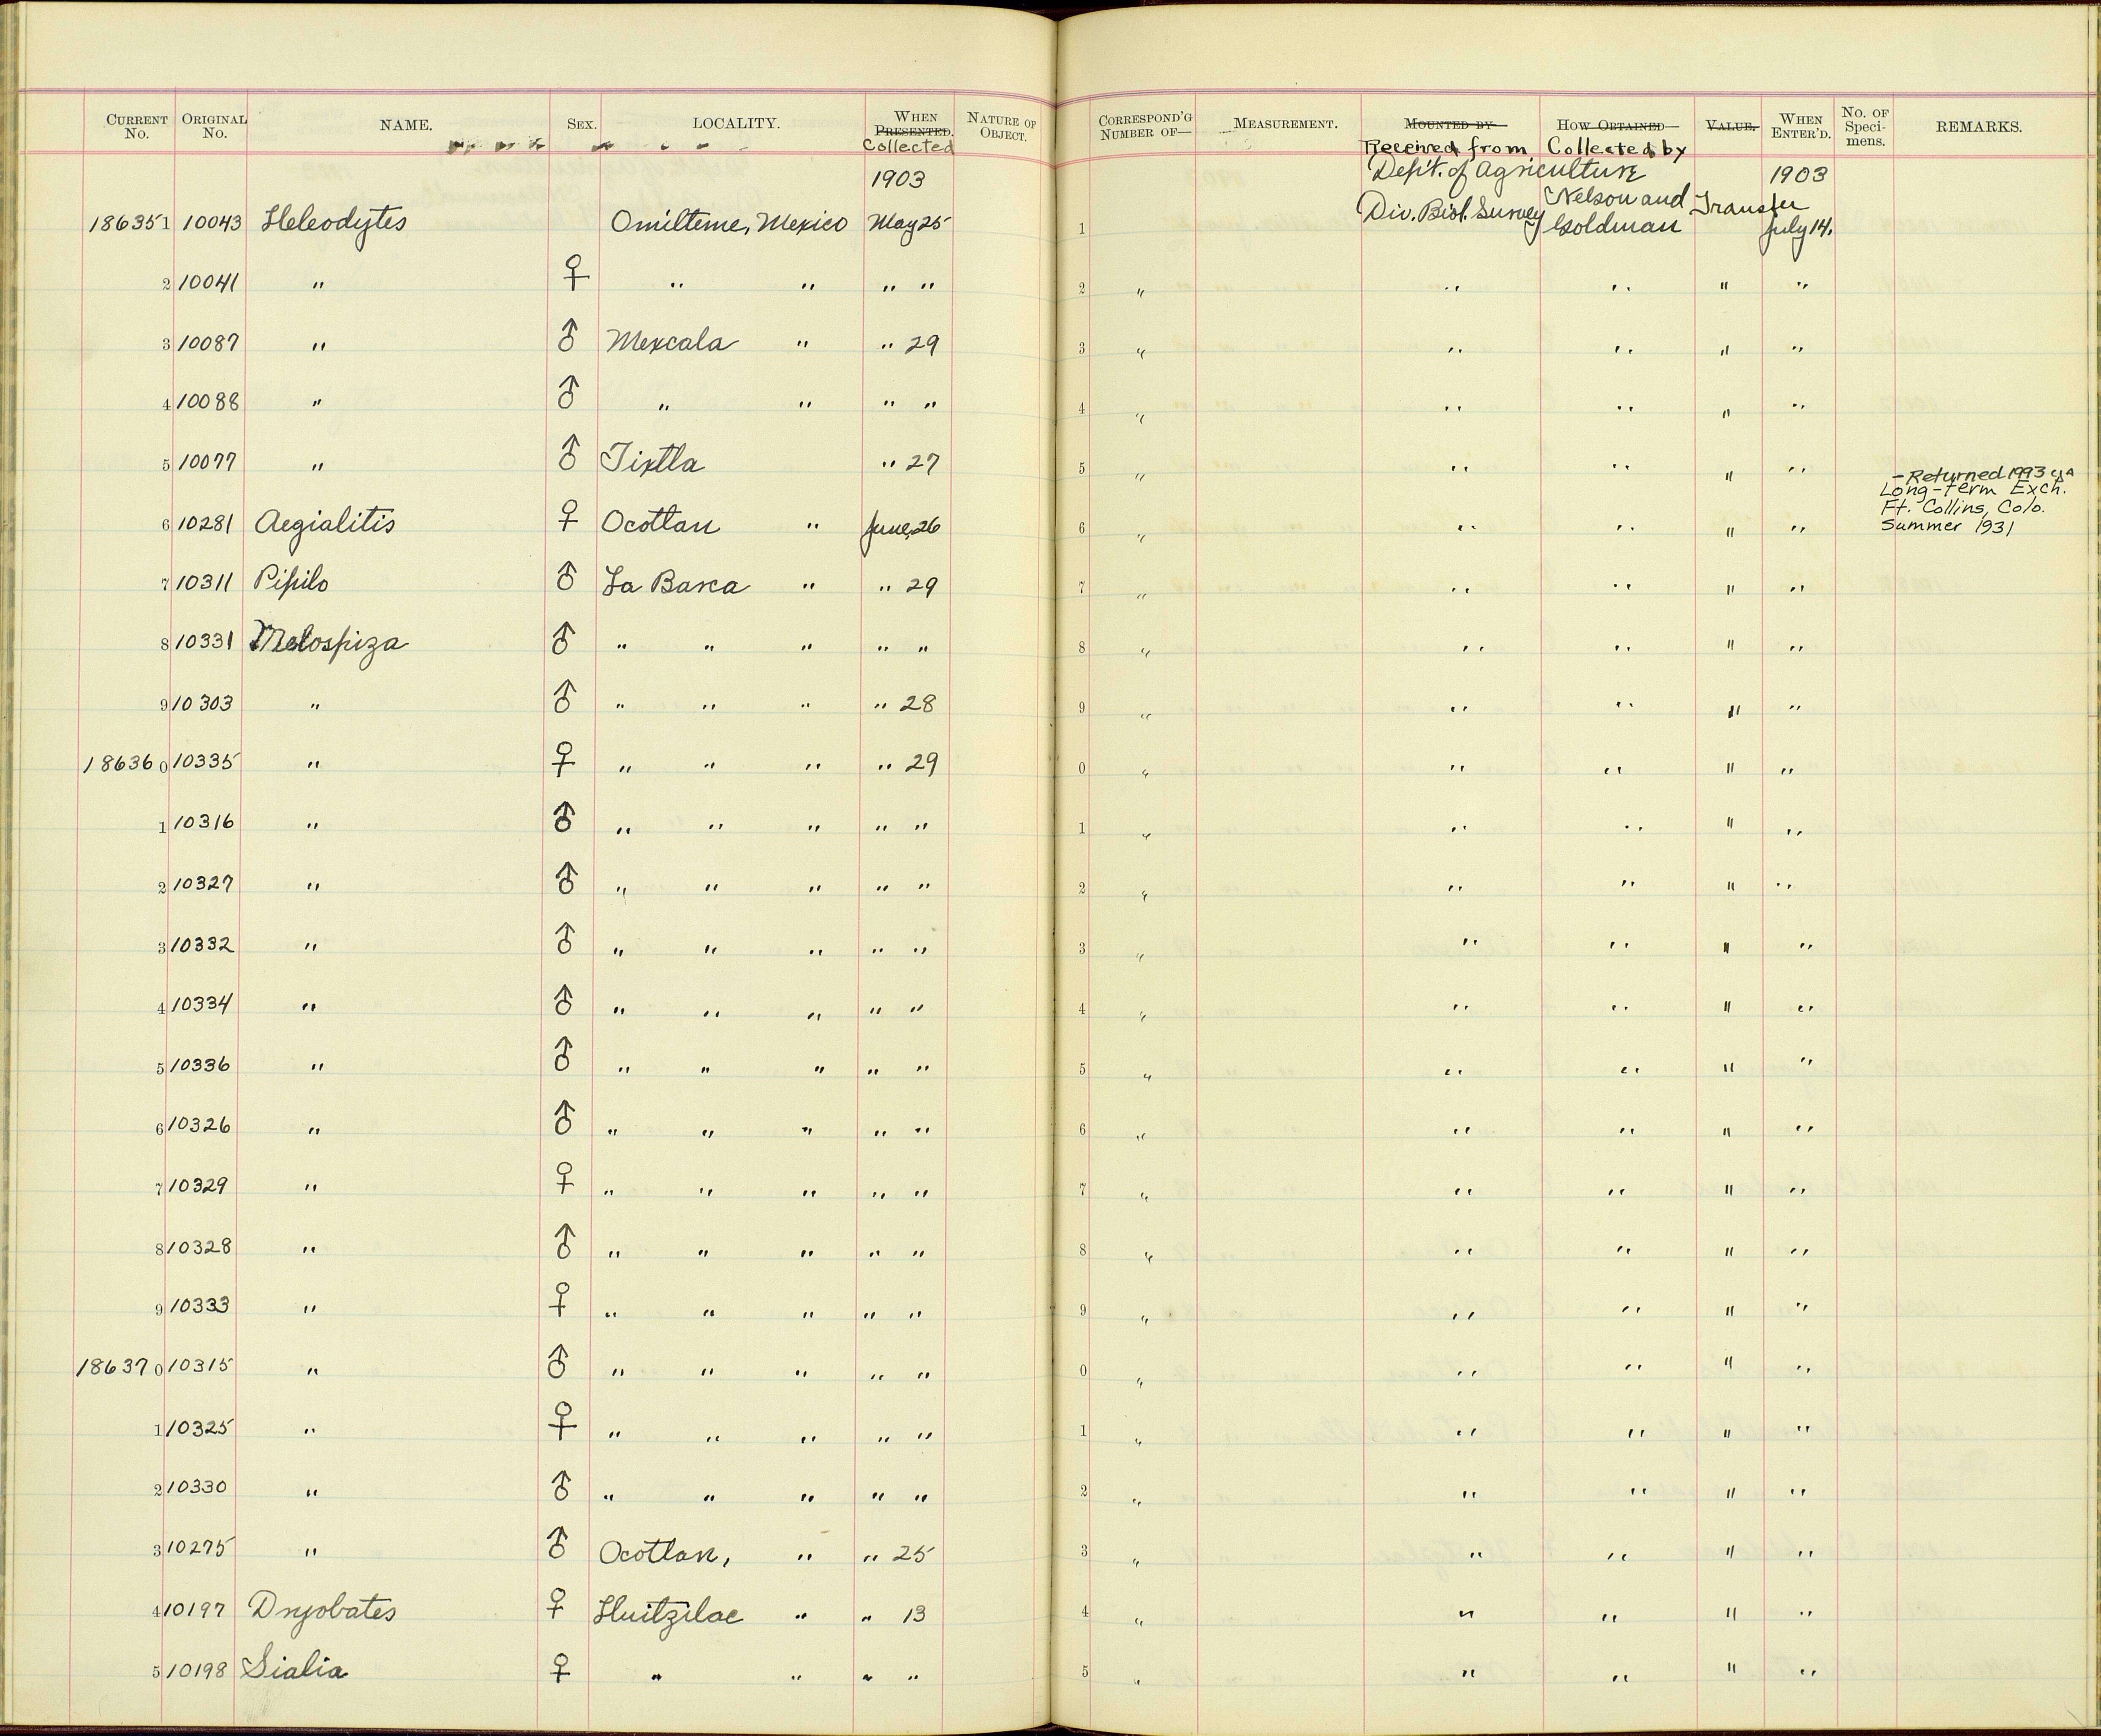 CURRENT No. ORIGINAL No. NAME. SEX. LOCALITY. WHEN PRESENTED. Collected NATURE OF OBJECT. CORRESPOND'G NUMBER OF— MEASUREMENT. MOUNTED BY Received from HOW OBTAINED Collected by VALUE. WHEN ENTER'D. No. OF Speci-mens. REMARKS.
1903 Dep't. of Agriculture 1903
186351 10043 Heleodytes Omilteme, Mexico May 25 1 Div. Biol. Survey Nelson and Goldman Transfer July 14.
2 10041 " ♀ " " " " 2 " " " " "
3 10087 " ♂ Mexcala " " 29 3 " " " " "
4 10088 " ♂ " " " " 4 " " " " "
5 10077 " ♂ Tixtla " 27 5 " " " " "
6 10281 Aegialitis ♀ Ocotlan " June 26 6 " " " " " – Returned 1993
Long-term Exch.
Ft. Collins, Colo.
Summer 1931
7 10311 Pipilo ♂ La Barca " " 29 7 " " " " "
8 10331 Melospiza ♂ " " " " " 8 " " " " "
9 10303 " ♂ " " " " 28 9 " " " " "
186360 10335 " ♀ " " " " 29 0 " " " " "
1 10316 " ♂ " " " " " 1 " " " " "
2 10327 " ♂ " " " " " 2 " " " " "
3 10332 " ♂ " " " " " 3 " " " " "
4 10334 " ♂ " " " " " 4 " " " " "
5 10336 " ♂ " " " " " 5 " " " " "
6 10326 " ♂ " " " " " 6 " " " " "
7 10329 " ♀ " " " " " 7 " " " " "
8 10328 " ♂ " " " " " 8 " " " " "
9 10333 " ♀ " " " " " 9 " " " " "
186370 10315 " ♂ " " " " " 0 " " " " "
1 10325 " ♀ " " " " " 1 " " " " "
2 10330 " ♂ " " " " " 2 " " " " "
3 10275 " ♂ Ocotlan, " " 25 3 " " " " "
4 10197 Dryobates ♀ Huitzilac " " 13 4 " " " " "
5 10198 Sialia ♀ " " " " 5 " " " " "